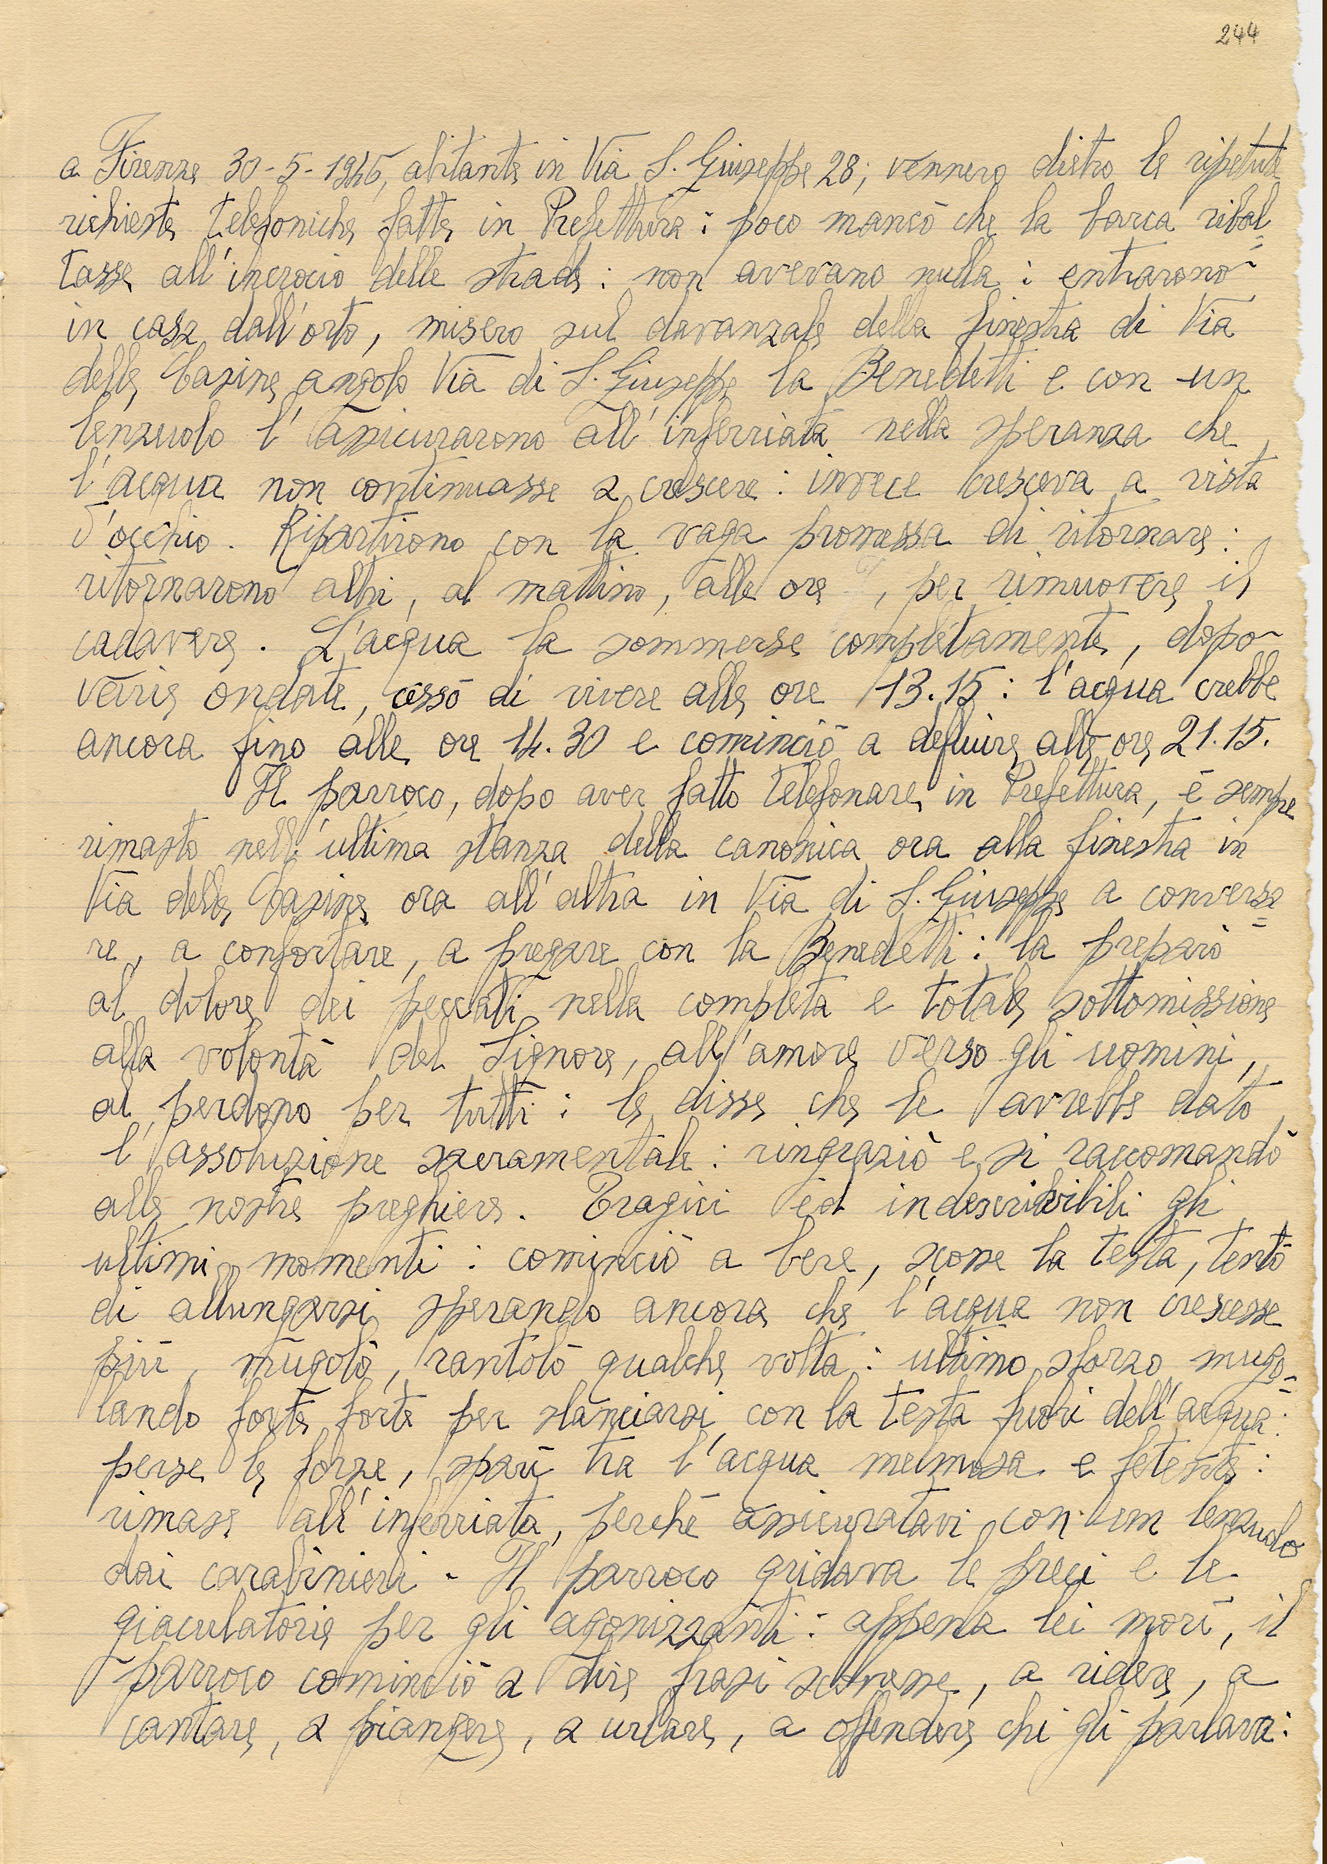 244
a Firenze 30-5-1946, abitante in Via S. Giuseppe 28; vennero dietro le ripetute
richieste telefoniche fatte in Prefettura: poco mancò che la barca ribal=
tasse all'incrocio delle strade: non avevano nulla: entrarono
in casa dall'orto, misero sul davanzale della finestra di Via
delle Casine angolo Via di S. Giuseppe la Benedetti e con un
lenzuolo l'assicurarono all'inferriata nella speranza che
l'acqua non continuasse a crescere: invece cresceva a vista
d'occhio. Ripartirono con la vaga promessa di ritornare:
ritornarono altri, al mattino, alle ore , per rimuovere il
cadavere. L'acqua la sommerse completamente, dopo
varie ondate, cessò di vivere alle ore 13.15: l'acqua crebbe
ancora fino alle ore 14.30 e cominciò a defluire alle ore 21.15.
Il parroco, dopo aver fatto telefonare in Prefettura, è sempre
rimasto nell'ultima stanza della canonica ora alla finestra in
Via delle Casine ora all'altra in Via di S. Giuseppe a conversa=
re, a confortare, a pregare con la Benedetti: la preparò
al dolore dei peccati nella completa e totale sottomissione
alla volontà del Signore, all'amore verso gli uomini,
al perdono per tutti: le disse che le avrebbe dato
l'assoluzione sacramentale: ringraziò e si raccomandò
alle nostre preghiere. Tragici ed indescrivibili gli
ultimi momenti: cominciò a bere, scosse la testa, tentò
di allungarsi sperando ancora che l'acqua non crescesse
più, mugolò, rantolò qualche volta: ultimo sforzo mugo=
lando forte forte per slanciarsi con la testa fuori dell'acqua:
perse le forze, sparì tra l'acqua melmosa e fetente:
rimase all'inferriata, perché assicuratavi con un lenzuolo
dai carabinieri. Il parroco gridava le preci e le
giaculatorie per gli agonizzanti: appena lei morì, il
parroco cominciò a dire frasi sconnesse, a ridere, a
cantare, a piangere, a urlare, a offendere chi gli parlava: